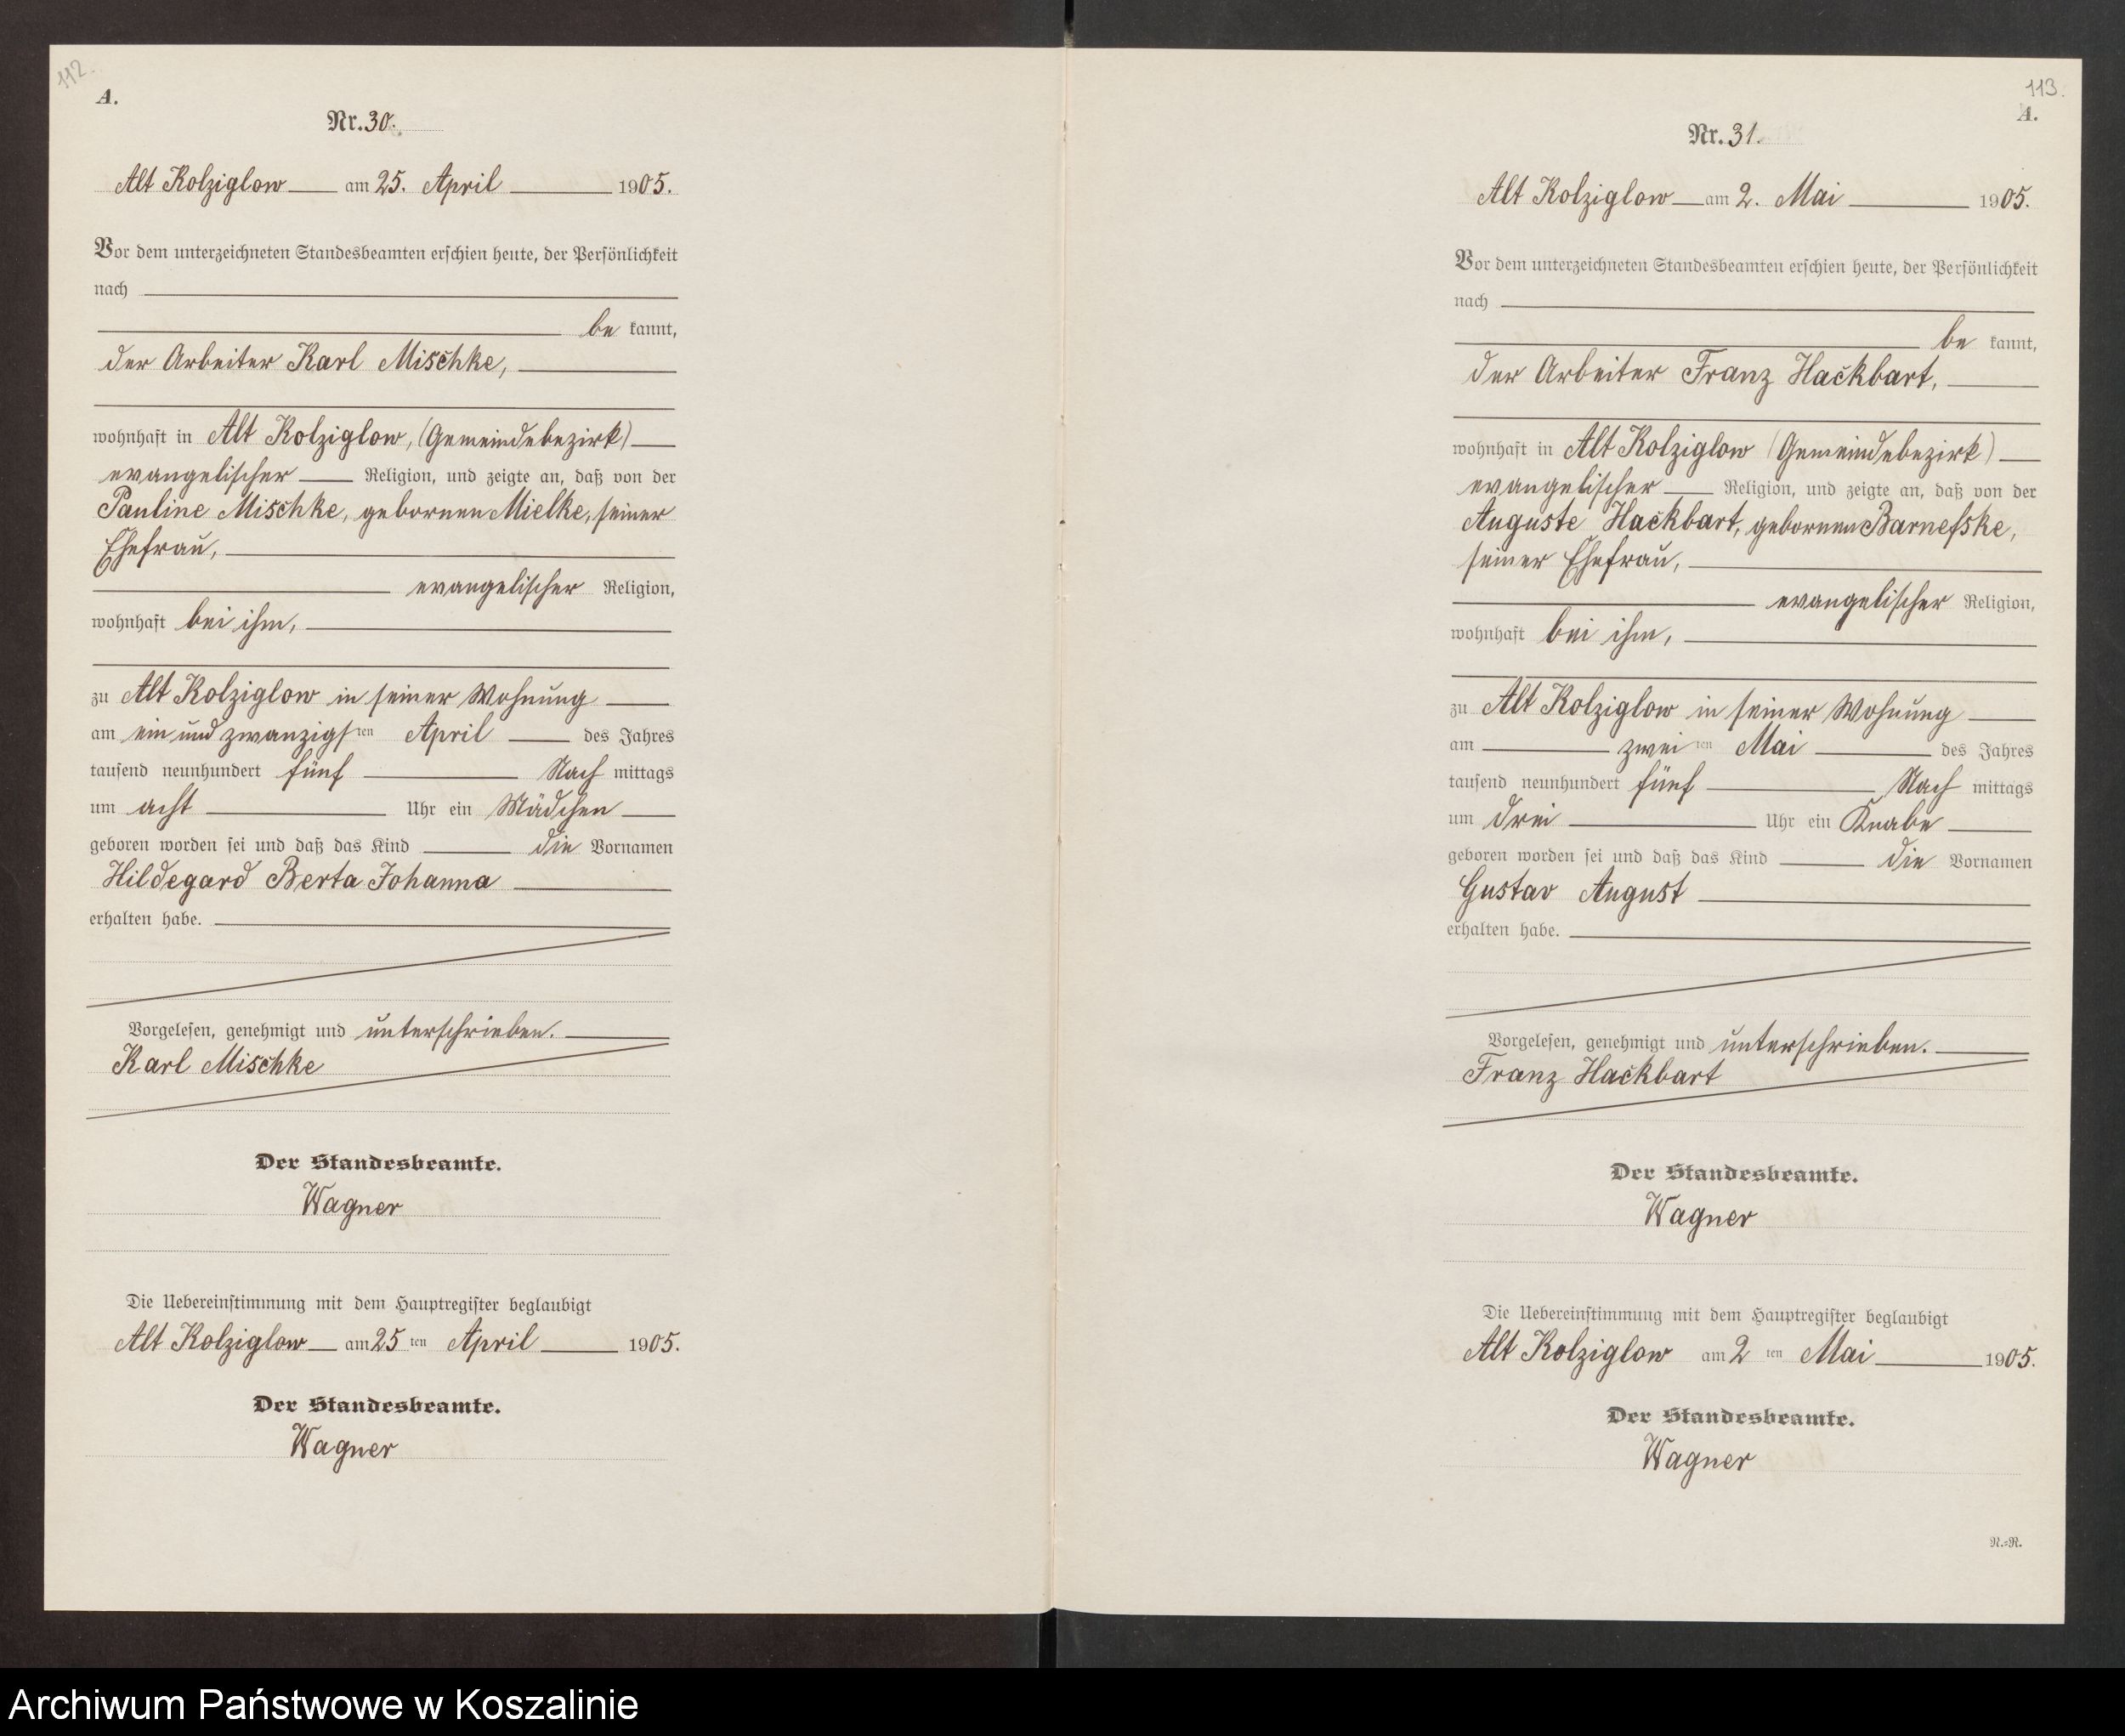 112.
A.
Nr. 30.
Alt Kolziglow am 25. April 1905.
Vor dem unterzeichneten Standesbeamten erschien heute, der Persönlichkeit
nach
be kannt,
der Arbeiter Karl Mischke,
wohnhaft in Alt Kolziglow, (Gemeindebezirk)
evangelischer Religion, und zeigte an, daß von der
Pauline Mischke, gebornen Mielke, seiner
Ehefrau,
evangelischer Religion,
wohnhaft bei ihm,
zu Alt Kolziglow in seiner Wohnung
am ein und zwanzigsten April des Jahres
tausend neunhundert fünf Nach mittags
um acht Uhr ein Mädchen
geboren worden sei und daß das Kind die Vornamen
Hildegard Berta Johanna
erhalten habe.
Vorgelesen, genehmigt und unterschrieben.
Karl Mischke
Der Standesbeamte.
Wagner
Die Uebereinstimmung mit dem Hauptregister beglaubigt
Alt Kolziglow am 25 ten April 1905.
Der Standesbeamte.
Wagner
113.
A.
Nr. 31.
Alt Kolziglow am 2. Mai 1905.
Vor dem unterzeichneten Standesbeamten erschien heute, der Persönlichkeit
nach
be kannt,
der Arbeiter Franz Hackbart,
wohnhaft in Alt Kolziglow (Gemeindebezirk)
evangelischer Religion, und zeigte an, daß von der
Auguste Hackbart, gebornen Barnefske,
seiner Ehefrau,
evangelischer Religion,
wohnhaft bei ihm,
zu Alt Kolziglow in seiner Wohnung
am zwei ten Mai des Jahres
tausend neunhundert fünf Nach mittags
um drei Uhr ein Knabe
geboren worden sei und daß das Kind die Vornamen
Gustav August
erhalten habe.
Vorgelesen, genehmigt und unterschrieben.
Franz Hackbart
Der Standesbeamte.
Wagner
Die Uebereinstimmung mit dem Hauptregister beglaubigt
Alt Kolziglow am 2 ten Mai 1905.
Der Standesbeamte.
Wagner
N.=R.
Archiwum Państwowe w Koszalinie